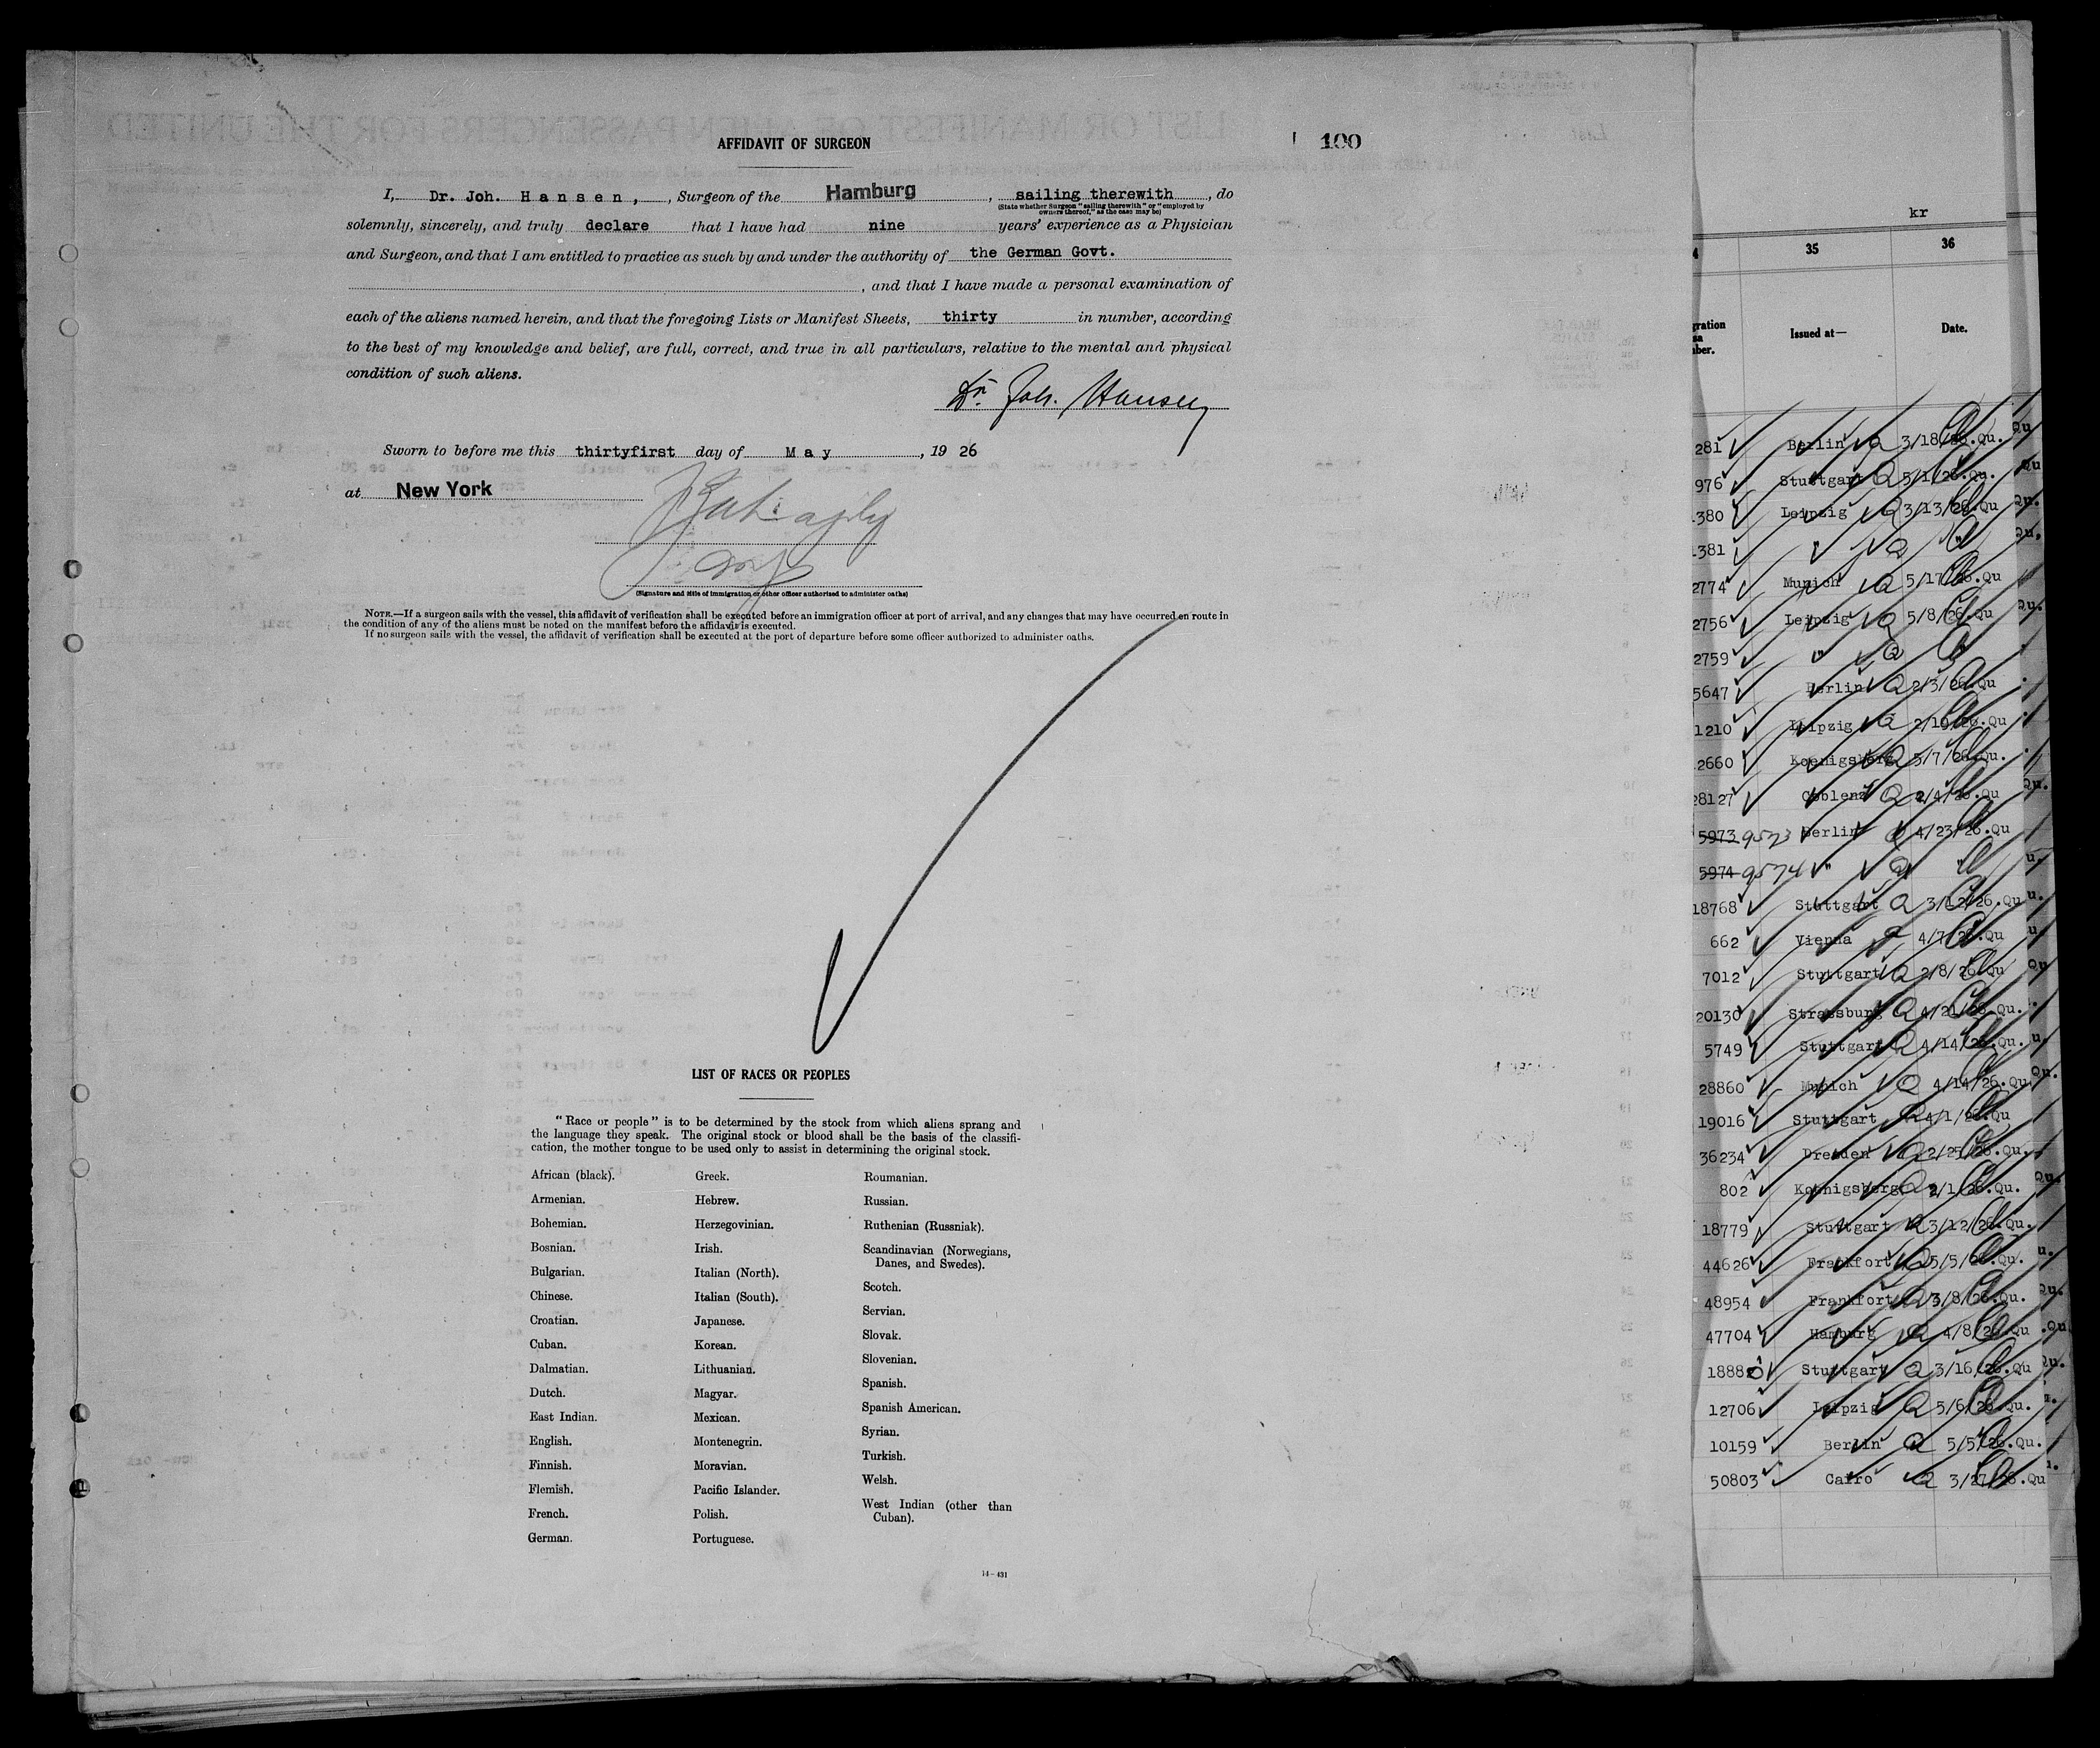 AFFIDAVIT OF SURGEON
100
I, Dr. Joh. Hansen, , Surgeon of the Hamburg , sailing therewith , do
(State whether Surgeon "sailing therewith" or "employed by
owners thereof," as the case may be)
solemnly, sincerely, and truly declare that I have had nine years' experience as a Physician
and Surgeon, and that I am entitled to practice as such by and under the authority of the German Govt.
, and that I have made a personal examination of
each of the aliens named herein, and that the foregoing Lists or Manifest Sheets, thirty in number, according
to the best of my knowledge and belief, are full, correct, and true in all particulars, relative to the mental and physical
condition of such aliens.
Dr. Joh. Hansen
Sworn to before me this thirtyfirst day of May , 19 26
at New York
(Signature and title of immigration or other officer authorized to administer oaths)
NOTE.—If a surgeon sails with the vessel, this affidavit of verification shall be executed before an immigration officer at port of arrival, and any changes that may have occurred en route in
the condition of any of the aliens must be noted on the manifest before the affidavit is executed.
If no surgeon sails with the vessel, the affidavit of verification shall be executed at the port of departure before some officer authorized to administer oaths.
LIST OF RACES OR PEOPLES
"Race or people" is to be determined by the stock from which aliens sprang and
the language they speak. The original stock or blood shall be the basis of the classifi-
cation, the mother tongue to be used only to assist in determining the original stock.
African (black).
Armenian.
Bohemian.
Bosnian.
Bulgarian.
Chinese.
Croatian.
Cuban.
Dalmatian.
Dutch.
East Indian.
English.
Finnish.
Flemish.
French.
German.
Greek.
Hebrew.
Herzegovinian.
Irish.
Italian (North).
Italian (South).
Japanese.
Korean.
Lithuanian.
Magyar.
Mexican.
Montenegrin.
Moravian.
Pacific Islander.
Polish.
Portuguese.
Roumanian.
Russian.
Ruthenian (Russniak).
Scandinavian (Norwegians,
Danes, and Swedes).
Scotch.
Servian.
Slovak.
Slovenian.
Spanish.
Spanish American.
Syrian.
Turkish.
Welsh.
West Indian (other than
Cuban).
14-431
kr
35 36
Issued at— Date.
281 Berlin 3/18/26.Qu.
976 Stuttgart 5/1/26.Qu.
380 Leipzig 3/13/26.Qu.
381 " "
2774 Munich 5/17/26.Qu
2756 Leipzig 5/8/26.Qu.
2759 " "
5647 Berlin 2/3/26.Qu
1210 Leipzig 2/19/26.Qu
2660 Koenigsberg 5/7/26.Qu.
28127 Coblenz 2/4/26.Qu
5973 9573 Berlin 4/23/26.Qu
5974 9574 " "
18768 Stuttgart 3/12/26.Qu
662 Vienna 4/7/26.Qu
7012 Stuttgart 2/8/26.Qu
20130 Strassburg 4/21/26.Qu.
5749 Stuttgart 4/14/26.Qu.
28860 Munich 4/14/26.Qu.
19016 Stuttgart 4/1/26.Qu
36234 Dresden 2/25/26.Qu.
802 Koenigsberg 2/1/26.Qu.
18779 Stuttgart 3/12/26.Qu.
44626 Frankfort 5/5/26.Qu.
48954 Frankfort 3/8/26.Qu.
47704 Hamburg 4/8/26.Qu
18880 Stuttgart 3/16/26.Qu
12706 Leipzig 5/6/26 Qu.
10159 Berlin 5/5/26.Qu.
50803 Cairo 3/27/26.Qu